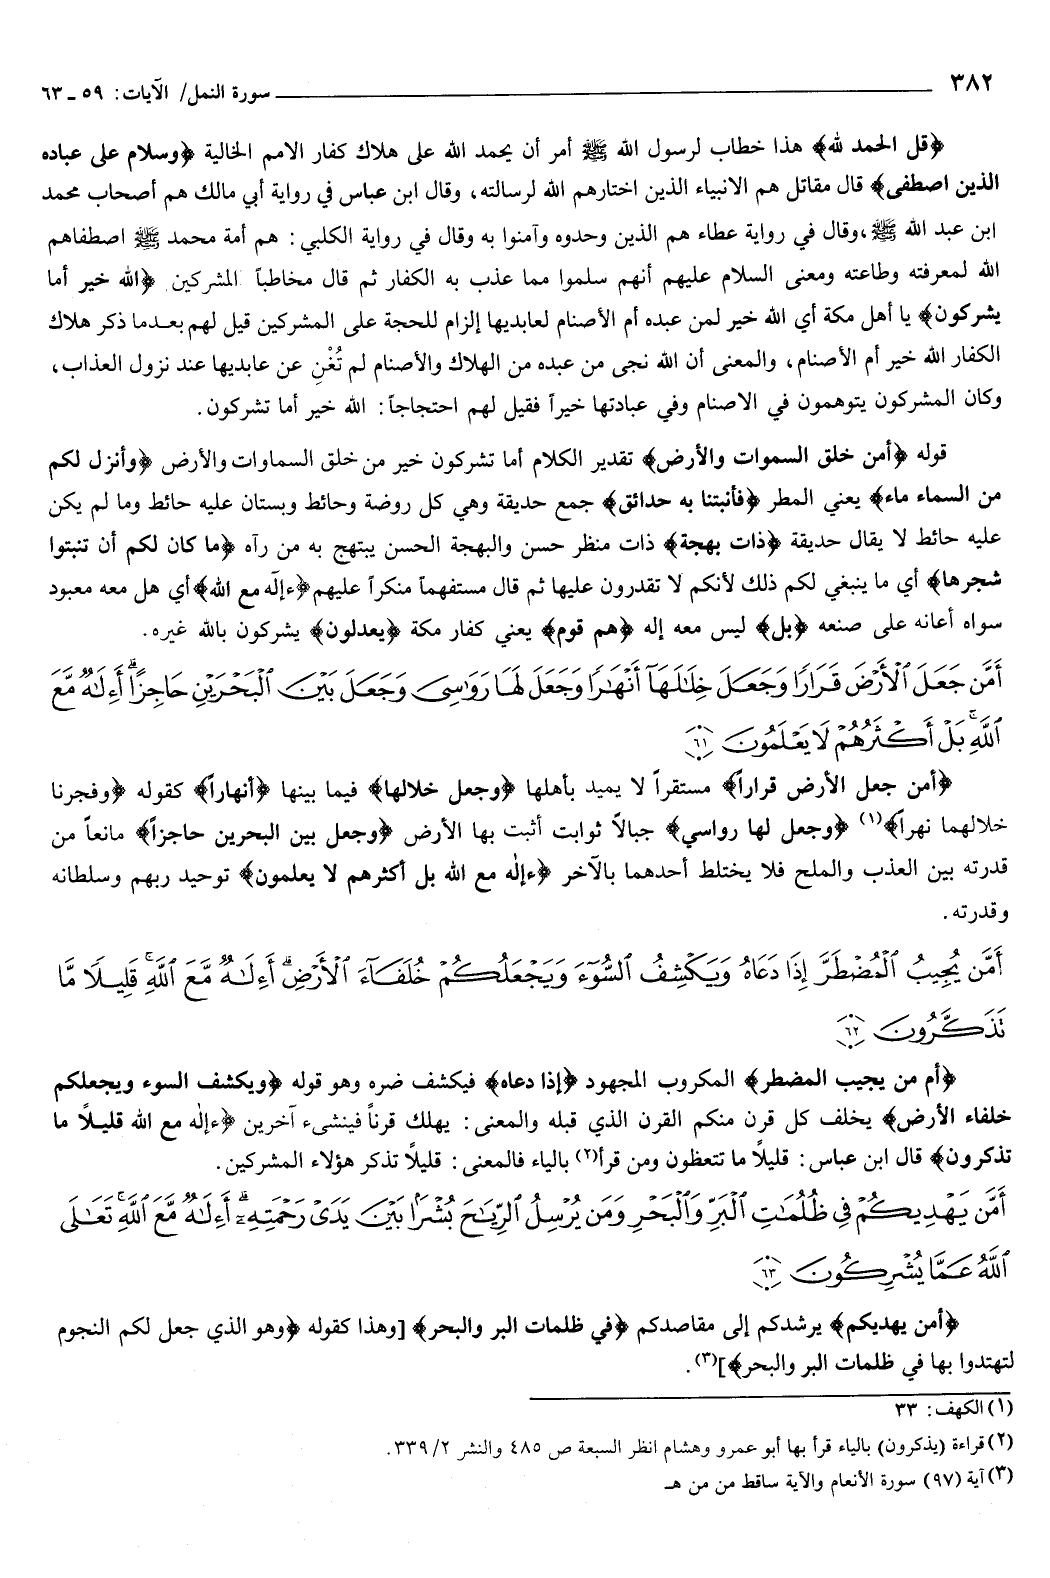 ٣٨٢ سورة النمل/ الآيات: ٥٩ ـ ٦٣
﴿قل الحمد لله﴾ هذا خطاب لرسول الله ﷺ أمر أن يحمد الله على هلاك كفار الامم الخالية ﴿وسلام على عباده
الذين اصطفى﴾ قال مقاتل هم الانبياء الذين اختارهم الله لرسالته، وقال ابن عباس في رواية أبي مالك هم أصحاب محمد
ابن عبد الله ﷺ،وقال في رواية عطاء هم الذين وحدوه وآمنوا به وقال في رواية الكلبي: هم أمة محمد ﷺ اصطفاهم
الله لمعرفته وطاعته ومعنى السلام عليهم أنهم سلموا مما عذب به الكفار ثم قال مخاطباً المشركين ﴿الله خير أما
يشركون﴾ يا أهل مكة أي الله خير لمن عبده أم الأصنام لعابديها إلزام للحجة على المشركين قيل لهم بعدما ذكر هلاك
الكفار الله خير أم الأصنام، والمعنى أن الله نجى من عبده من الهلاك والأصنام لم تُغْنِ عن عابديها عند نزول العذاب،
وكان المشركون يتوهمون في الاصنام وفي عبادتها خيراً فقيل لهم احتجاجاً: الله خير أما تشركون.
قوله ﴿أمن خلق السموات والأرض﴾ تقدير الكلام أما تشركون خير من خلق السماوات والأرض ﴿وأنزل لكم
من السماء ماء﴾ يعني المطر ﴿فأنبتنا به حدائق﴾ جمع حديقة وهي كل روضة وحائط وبستان عليه حائط وما لم يكن
عليه حائط لا يقال حديقة ﴿ذات بهجة﴾ ذات منظر حسن والبهجة الحسن يبتهج به من رآه ﴿ما كان لكم أن تنبتوا
شجرها﴾ أي ما ينبغي لكم ذلك لأنكم لا تقدرون عليها ثم قال مستفهماً منكراً عليهم ﴿ءإلٓه مع الله﴾ أي هل معه معبود
سواه أعانه على صنعه ﴿بل﴾ ليس معه إله ﴿هم قوم﴾ يعني كفار مكة ﴿يعدلون﴾ يشركون بالله غيره.
أَمَّن جَعَلَ ٱلْأَرْضَ قَرَارًا وَجَعَلَ خِلَٰلَهَآ أَنْهَٰرًا وَجَعَلَ لَهَا رَوَٰسِىَ وَجَعَلَ بَيْنَ ٱلْبَحْرَيْنِ حَاجِزًا ۗ أَءِلَٰهٌ مَّعَ
ٱللَّهِ ۚ بَلْ أَكْثَرُهُمْ لَا يَعْلَمُونَ ﴿٦١﴾
﴿أمن جعل الأرض قراراً﴾ مستقراً لا يميد بأهلها ﴿وجعل خلالها﴾ فيما بينها ﴿أنهاراً﴾ كقوله ﴿وفجرنا
خلالهما نهراً﴾(١) ﴿وجعل لها رواسي﴾ جبالاً ثوابت أثبت بها الأرض ﴿وجعل بين البحرين حاجزاً﴾ مانعاً من
قدرته بين العذب والملح فلا يختلط أحدهما بالآخر ﴿ءإلٰه مع الله بل أكثرهم لا يعلمون﴾ توحيد ربهم وسلطانه
وقدرته.
أَمَّن يُجِيبُ ٱلْمُضْطَرَّ إِذَا دَعَاهُ وَيَكْشِفُ ٱلسُّوٓءَ وَيَجْعَلُكُمْ خُلَفَآءَ ٱلْأَرْضِ ۗ أَءِلَٰهٌ مَّعَ ٱللَّهِ ۚ قَلِيلًا مَّا
تَذَكَّرُونَ ﴿٦٢﴾
﴿أم من يجيب المضطر﴾ المكروب المجهود ﴿إذا دعاه﴾ فيكشف ضره وهو قوله ﴿ويكشف السوء ويجعلكم
خلفاء الأرض﴾ يخلف كل قرن منكم القرن الذي قبله والمعنى: يهلك قرناً فينشىء آخرين ﴿ءإلٰه مع الله قليلاً ما
تذكرون﴾ قال ابن عباس: قليلاً ما تتعظون ومن قرأ(٢) بالياء فالمعنى: قليلاً تذكر هؤلاء المشركين.
أَمَّن يَهْدِيكُمْ فِى ظُلُمَٰتِ ٱلْبَرِّ وَٱلْبَحْرِ وَمَن يُرْسِلُ ٱلرِّيَٰحَ بُشْرًا بَيْنَ يَدَىْ رَحْمَتِهِۦٓ ۗ أَءِلَٰهٌ مَّعَ ٱللَّهِ ۚ تَعَٰلَى
ٱللَّهُ عَمَّا يُشْرِكُونَ ﴿٦٣﴾
﴿أمن يهديكم﴾ يرشدكم إلى مقاصدكم ﴿في ظلمات البر والبحر﴾ [وهذا كقوله ﴿وهو الذي جعل لكم النجوم
لتهتدوا بها في ظلمات البر والبحر﴾](٣).
(١) الكهف: ٣٣
(٢) قراءة (يذكرون) بالياء قرأ بها أبو عمرو وهشام انظر السبعة ص ٤٨٥ والنشر ٢/ ٣٣٩.
(٣) آية (٩٧) سورة الأنعام والآية ساقط من من هـ